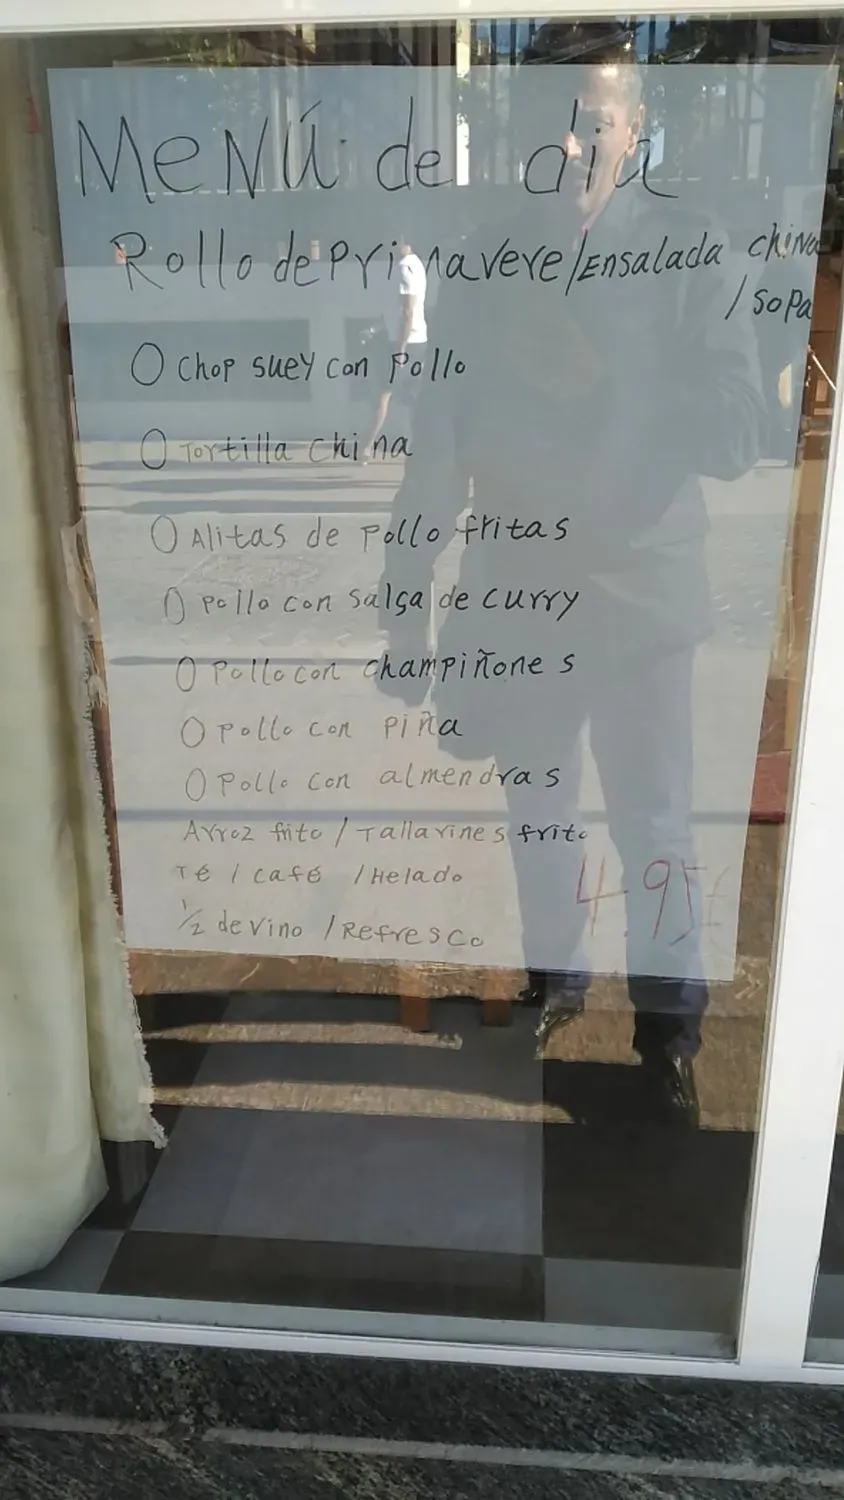 MeNÚ de dia
Rollo de Primavere/Ensalada china
/Sopa
O Chop suey con Pollo
O Tortilla china
O Alitas de Pollo fritas
O Pollo con Salça de curry
O Pollo con champiñones
O Pollo con piña
O Pollo con almendras
Arroz frito / Tallarines frito
Té / café / Helado
1/2 de vino / Refresco
4.95€